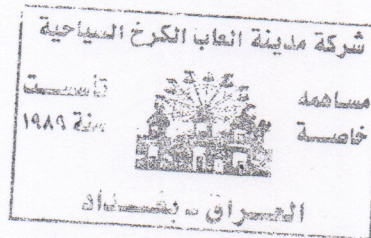 شركة مدينة العاب الكرخ السياحية
مساهمة خاصة
تأسست سنة ١٩٨٩
العراق - بغداد